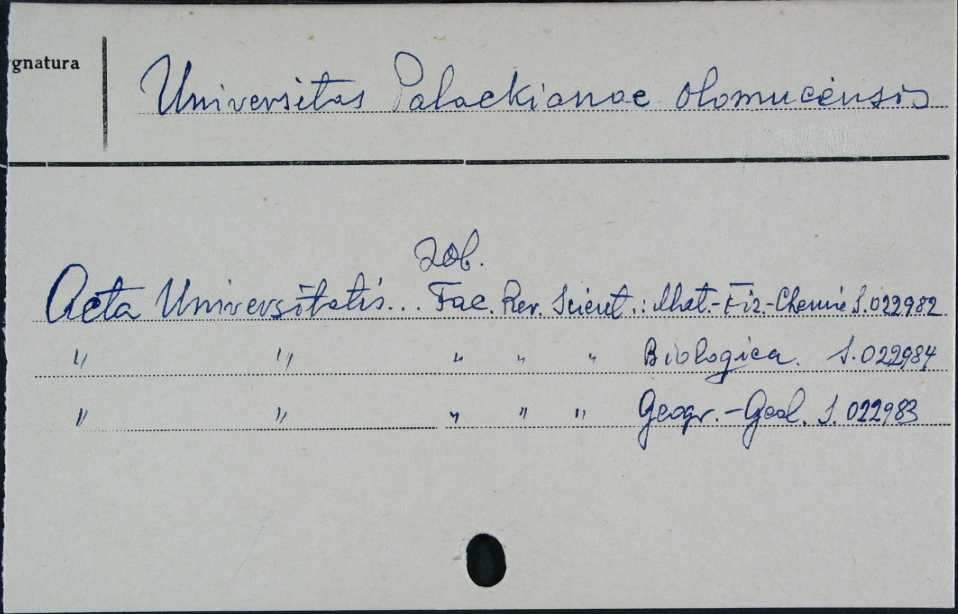 gnatura
Universitas Palackianae Olomucensis
Zob.
Acta Universitatis... Fac. Rer. Scient.: Mat.-Fiz.-Chemie S.022982
" " " " " Biologica. S.022984
" " " " " Geogr.-Geol. S.022983